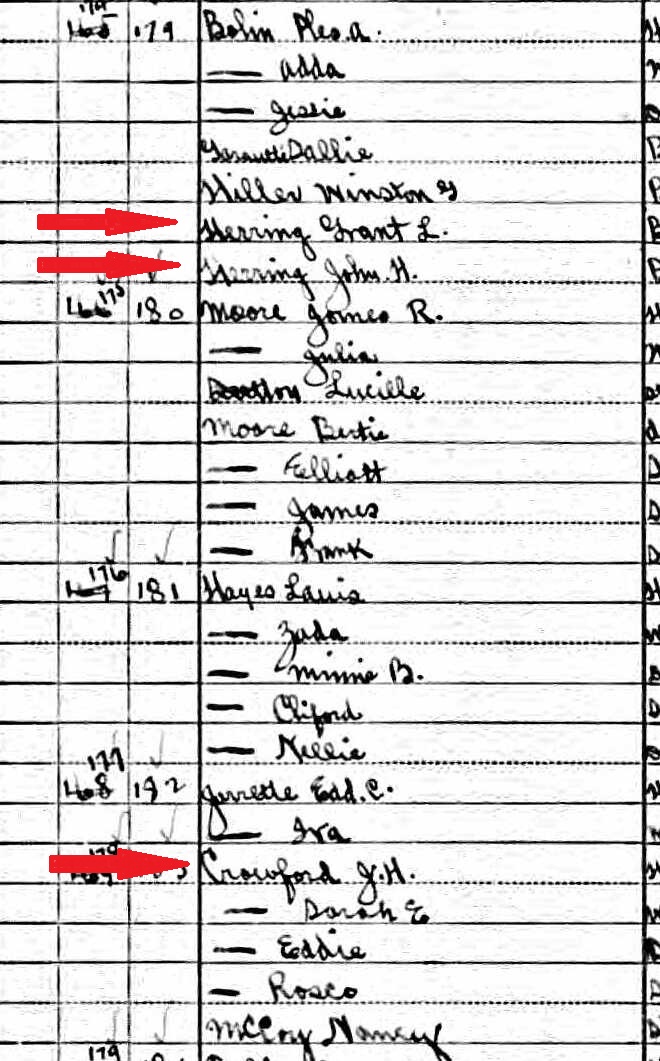 174
179 Bolin Pleo. A.
— Adda
— Jessie
Dallie
Hiller Winston G
Herring Grant L.
Herring John. H.
175
180 Moore James R.
— Julia
Lucille
Moore Bertie
— Elliott
— James
— Frank
176
181 Hayes Louis
— Zada
— Minnie B.
— Cliford
— Nellie
177
182 Edd. C.
— Iva
Crowford J. H.
— Sarah E
— Eddie
— Rosco
McCoy Nancy
179